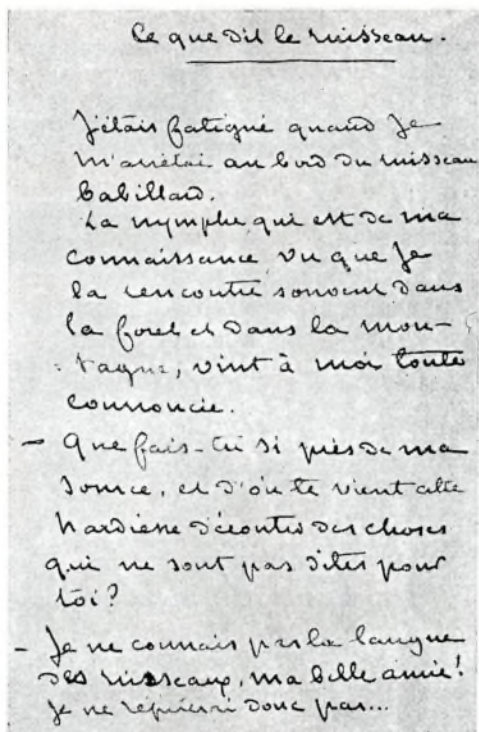 Ce que dit le ruisseau.
J'étais fatigué quand je
m'arrêtai au bord du ruisseau
babillard.
La nymphe qui est de ma
connaissance vu que je
la rencontre souvent dans
la foret et dans la mon-
- tagne, vint à moi toute
courroucée.
- Que fais-tu si près de ma
source, et d'où te vient cette
hardiesse d'écouter des choses
qui ne sont pas dites pour
toi?
- Je ne connais pas la langue
des ruisseaux, ma belle amie!
Je ne donc pas...